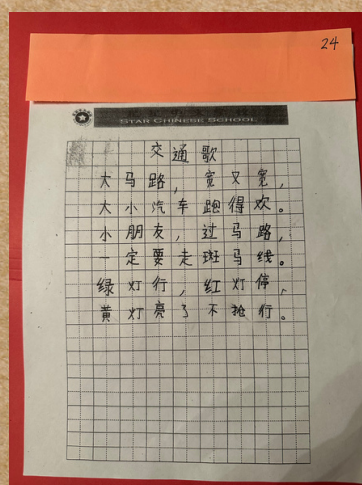 24
STAR CHINESE SCHOOL
交通歌
大马路，宽又宽，
大小汽车跑得欢。
小朋友，过马路，
一定要走斑马线。
绿灯行，红灯停、
黄灯亮了不抢行。